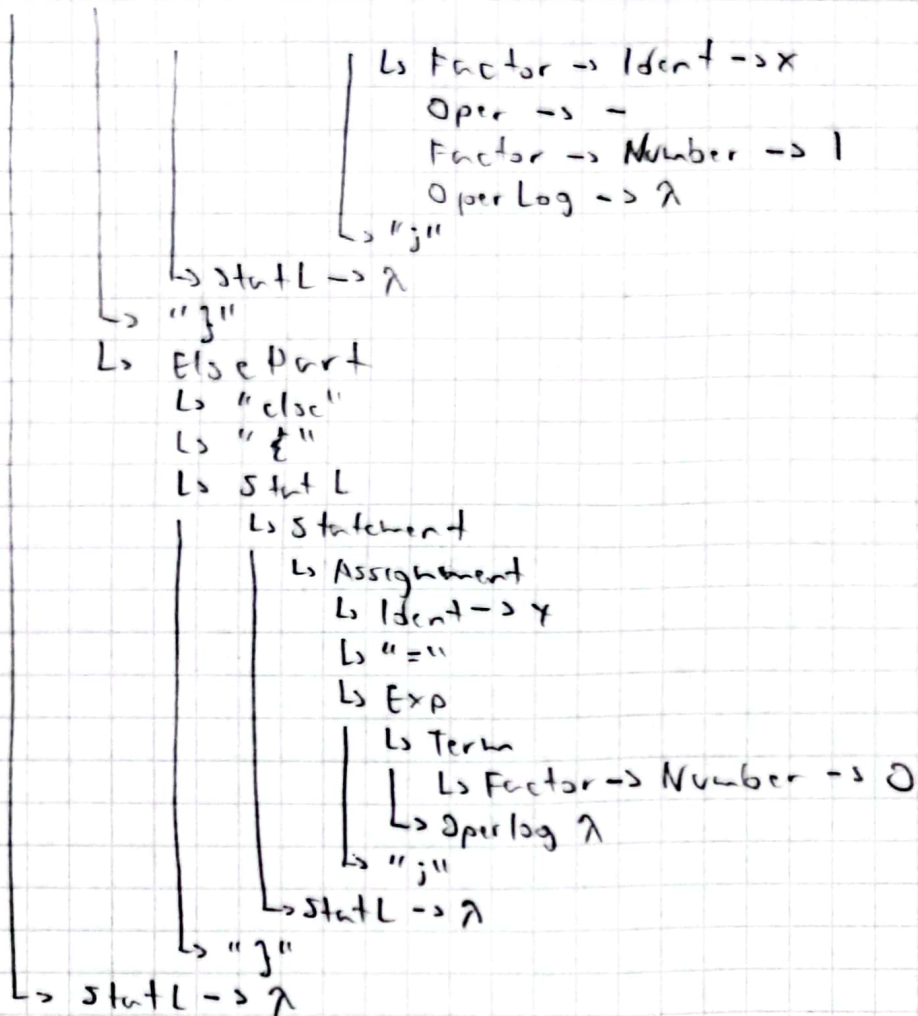 ↳ Factor -> Ident -> x
Oper -> -
Factor -> Number -> 1
OperLog -> λ
↳ ";"
↳ StatL -> λ
↳ "}"
↳ ElsePart
↳ "else"
↳ "{"
↳ StatL
↳ Statement
↳ Assignment
↳ Ident -> y
↳ "="
↳ Exp
↳ Term
↳ Factor -> Number -> 0
↳ Operlog λ
↳ ";"
↳ StatL -> λ
↳ "}"
↳ StatL -> λ